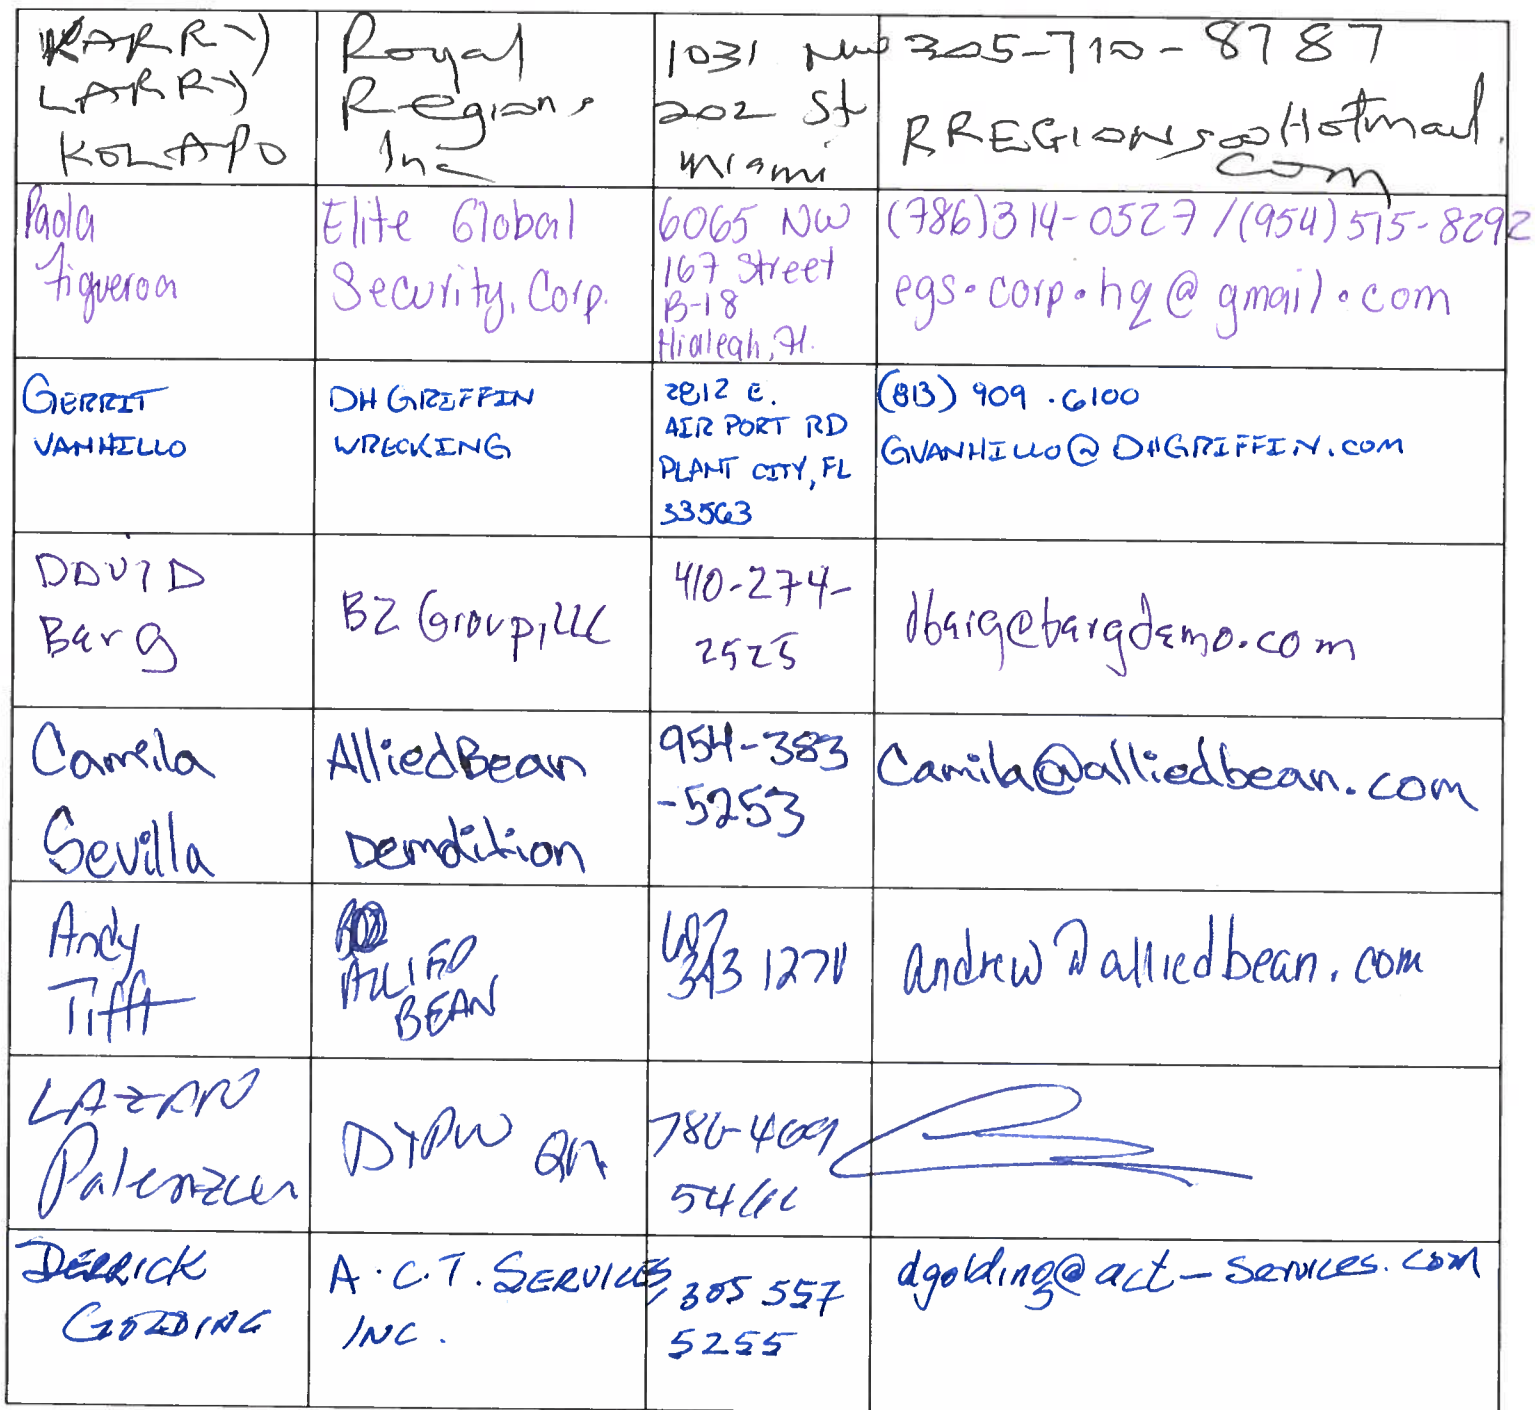 KARRY
LARRY
KOLAPO
Royal
Regions
Inc
1031 NW
202 St
Miami
305-710-8787
RREGIONS@Hotmail.
com
Paola
Figueroa
Elite Global
Security, Corp.
6065 NW
167 Street
B-18
Hialeah, Fl.
(786)314-0527 / (954) 515-8292
egs.corp.hq@gmail.com
GERRIT
VANHILLO
DH GRIFFIN
WRECKING
2812 E.
AIRPORT RD
PLANT CITY, FL
33563
(813) 909.6100
GVANHILLO@DHGRIFFIN.COM
DAVID
Barg
BZ Group, LLC
410-274-
2525
dbarg@bargdemo.com
Camila
Sevilla
AlliedBean
Demolition
954-383
-5253
Camila@alliedbean.com
Andy
Tifft
ALLIED
BEAN
607
343 1271
andrew@alliedbean.com
LAZARO
Palenzuela
786-409
DERRICK
GOLDING
A.C.T. SERVICES,
INC.
305 557
5255
dgolding@act-services.com